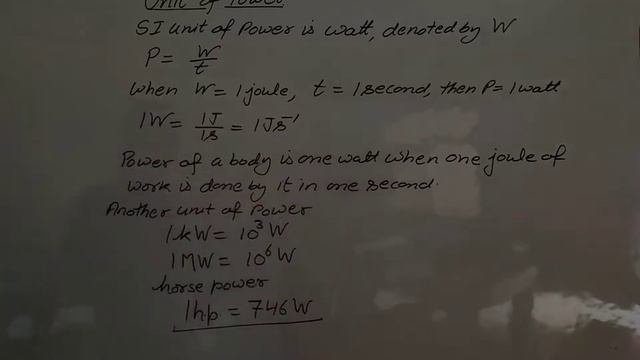 Unit of Power
SI unit of Power is watt, denoted by W
P = W/t
when W = 1 joule, t = 1 second, then P = 1 watt
1W = 1J/1s = 1Js⁻¹
Power of a body is one watt when one joule of
work is done by it in one second.
Another unit of Power
1kW = 10³ W
1MW = 10⁶ W
horse power
1hp = 746 W